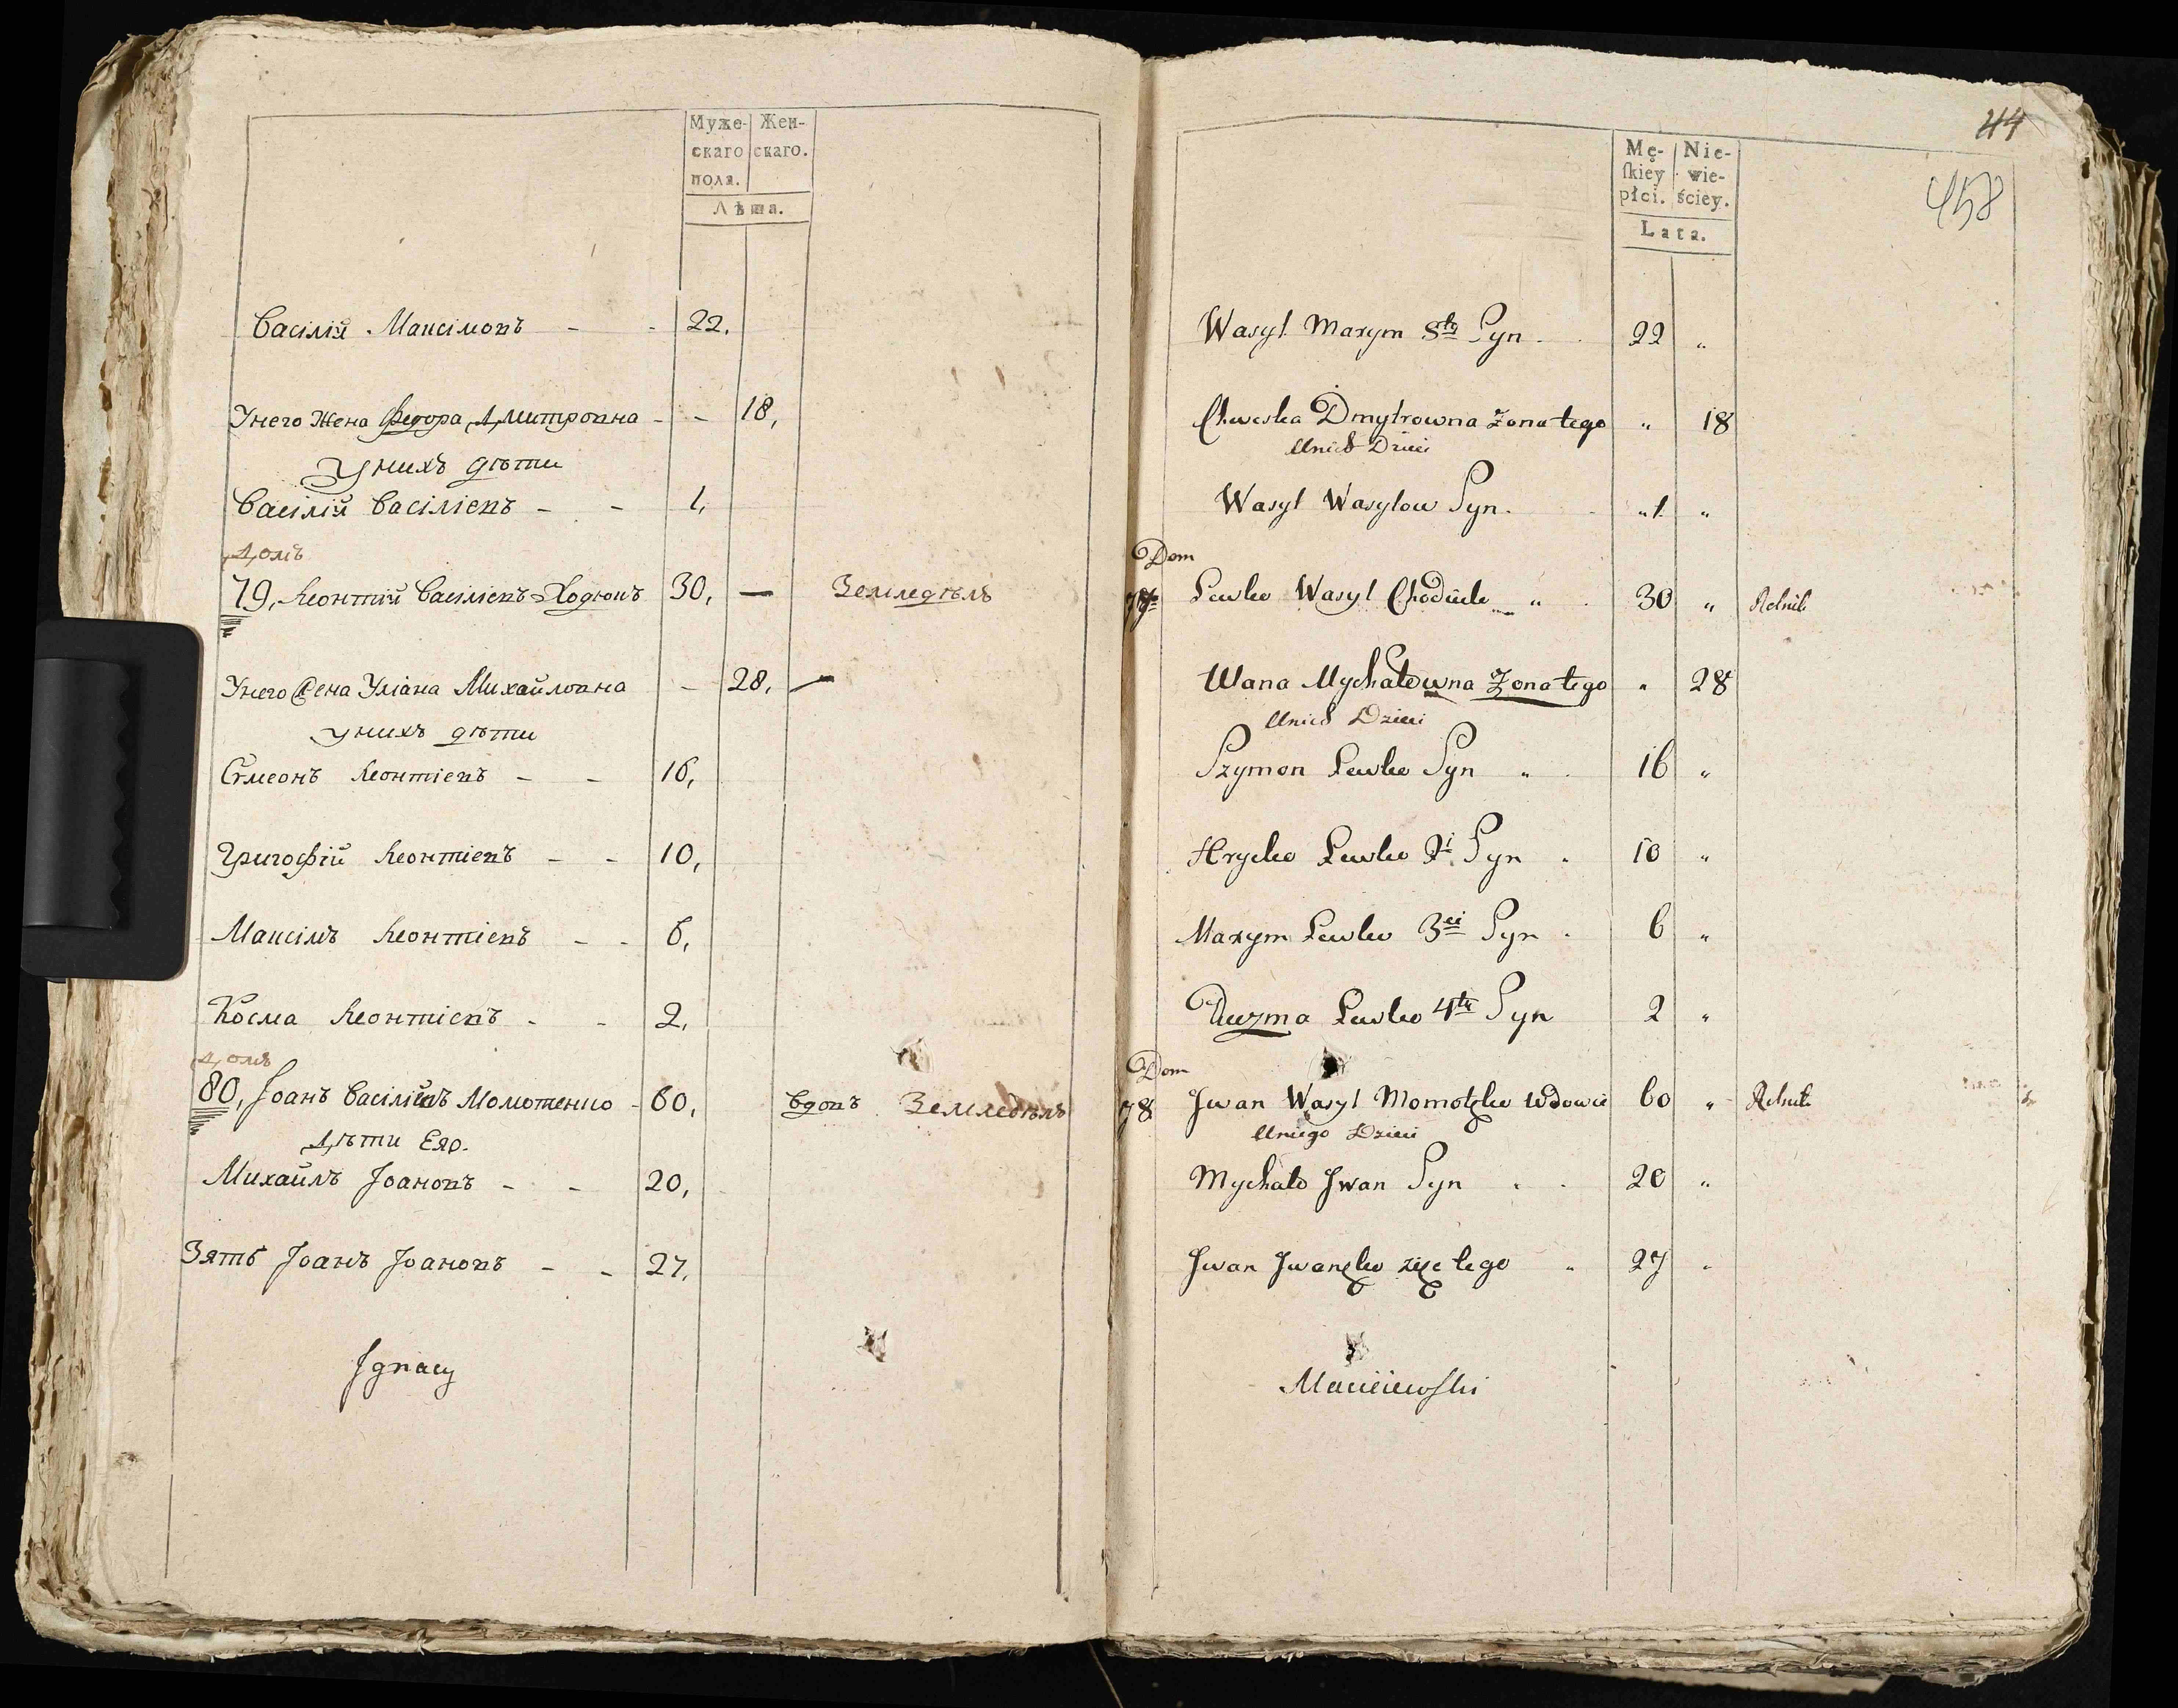 Муже- Жен-
скаго скаго.
пола.
Лѣта.
Василій Максімовъ - - 22,
Унего Жена Федора Дмитровна - - 18,
Унихъ дѣти
Василій Василіевъ - - 1,
Домъ
79, Леонтій Василіевъ Ходюкъ 30, — Земледѣлъ
Унего Жена Уліана Михайловна - 28, —
унихъ дѣти
Сѵмеонъ Леонтіевъ - - 16,
Григорій Леонтіевъ - - 10,
Максімъ Леонтіевъ - - 6,
Косма Леонтіевъ - - 2,
Домъ
80, Іоанъ Василіевъ Момотенко - 60, Вдовъ Земледѣлъ
Дѣти Его.
Михаилъ Іоановъ - - 20,
Зять Іоанъ Іоановъ - - 27,
Ignacy
44
458
Mę- Nie-
ſkiey wie-
płci. ściey.
Lata.
Wasyl Maxym Syn 22 „
Dmytrowna Zona tego „ 18
Unich Dzieci
Wasyl Wasylow Syn. „1 „
Dom
Lewko Wasyl Chodiuk „ 30 „ Rolnik
Ulana Mychałowna Zona tego „ 28
Unich Dzieci
Szymon Lewko Syn „ 16 „
Hrycko Lewko 2i Syn 10 „
Maxym Lewko 3ci Syn 6 „
Kuzma Lewko 4ty Syn 2 „
Dom
78 Jwan Wasyl Momotęko Wdowiec 60 „ Rolnik
Uniego Dzieci
Mychało Jwan Syn 20 „
Jwan Jwanęko zięć tego „ 27 „
Macieiewſki